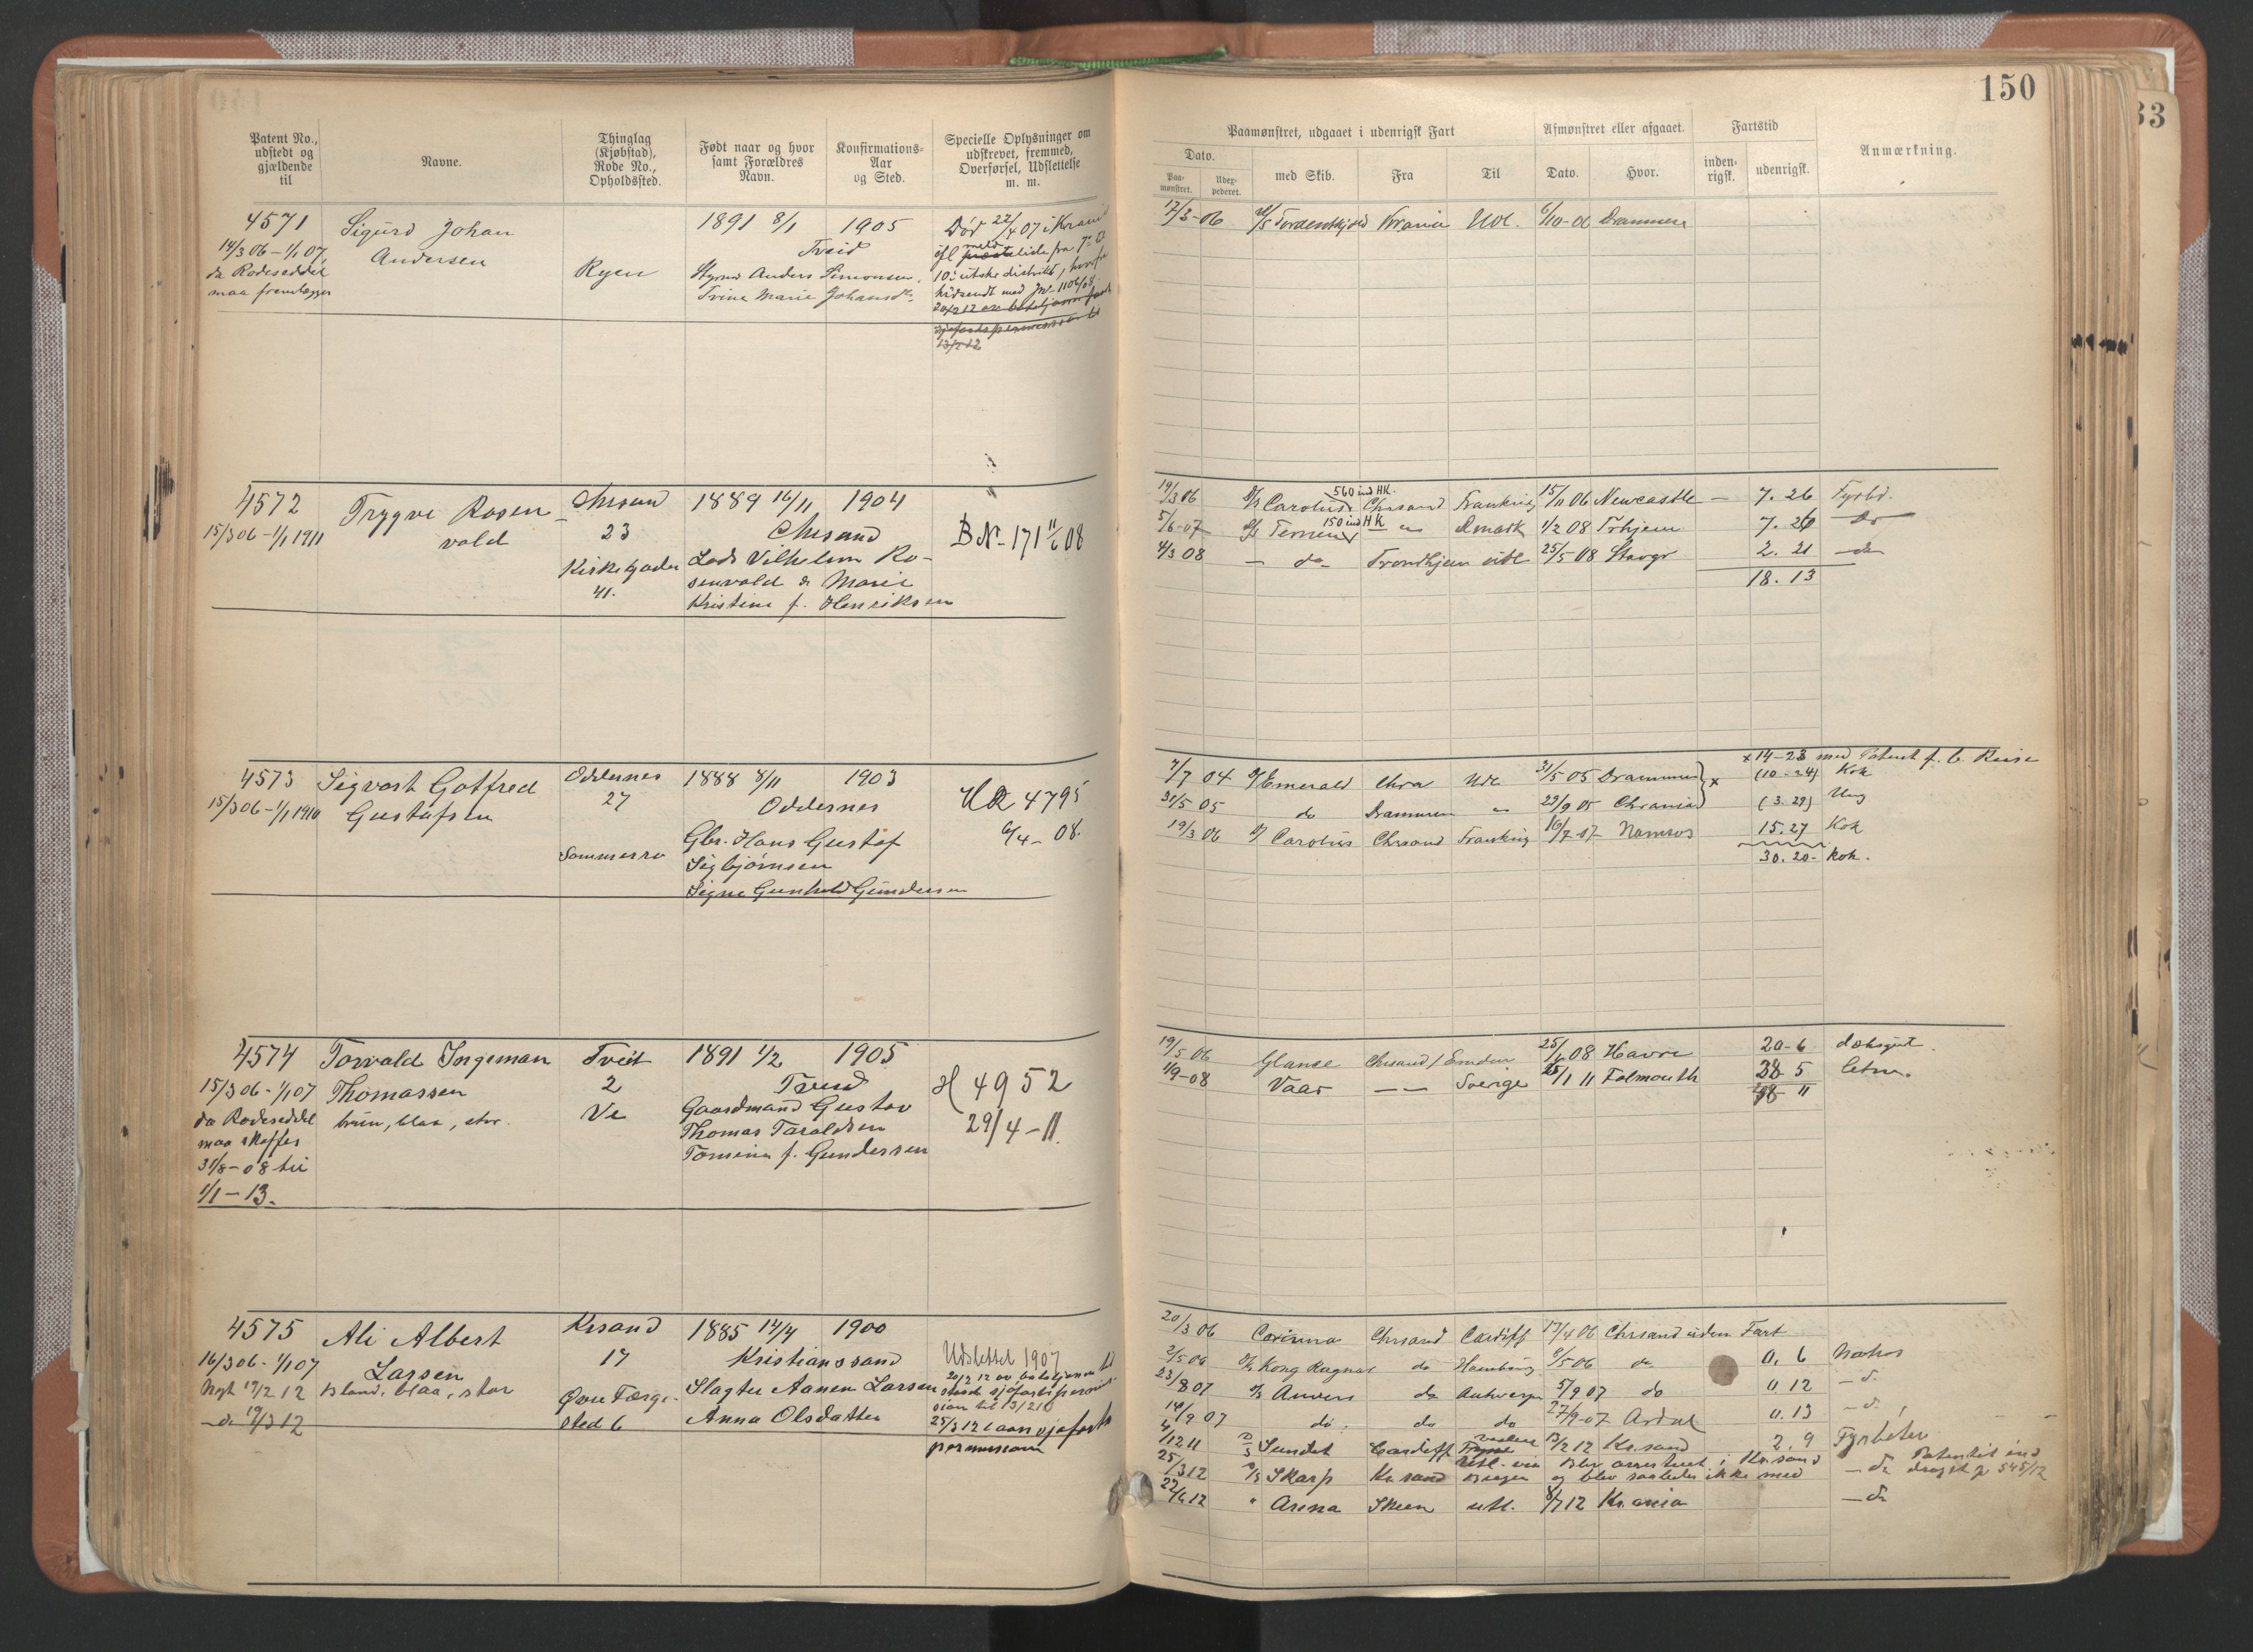 150
33
Patent No., udstedt og gjældende til
Navne.
Thinglag (Kjøbstad), Rode No., Opholdssted.
Født naar og hvor samt Forældres Navn.
Konfirmations-Aar og Sted.
Specielle Oplysninger om udskrevet, fremmed, Overførsel, Udslettelse m. m.
Paamønstret, udgaaet i udenrigsk Fart
Afmønstret eller afgaaet.
Fartstid
Anmærkning.
Dato.
Paa-mønstret.
Udex-pederet.
med Skib.
Fra
Til
Dato.
Hvor.
inden-rigsk.
udenrigsk.
4571 Sigurd Johan 1891 8/1 1905 Død 22/4 07 i Krania
14/3 06 - 1/1 07, Andersen Ryen Tveid
da Rodeseddel Styrmd Anders Simonsen,
maa fremlægges Trine Marie Johansdtr
13/2 12
17/3-06 Tordenskjold Krania Udl. 6/10-06 Drammen
4572 Trygve Rosen- Chrsand 1889 16/11 1904
15/3 06 - 1/1 1911 vold 23 Chrsand B No 171 11/6 08
Kirkegaden Lods Vilhelm Ro-
41. senvold & Marie
Kristine f. Henriksen
560 ind HK.
19/3 06 D/S Carolus Chrsand Frankrig 15/11 06 Newcastle - 7. 26 Fyrbd.
150 ind HK
5/6-07 D/S Ternen " Dmark 1/2 08 Trhjem 7. 26 do
4/3 08 - do - Trondhjem utl 25/5 08 Stavgr 2. 21 - do
18. 13
4573 Sigvart Gotfred Oddernes 1888 8/11 1903
15/3 06 - 1/1 1910 Gustafsen 27 Oddernes HR 4795
Sommerro Gbr. Hans Gustaf 6/4 - 08.
Sigbjørnsen
Signe Gunhild Gundersen
x 14-23 med Patent f. b. Reise
7/7 04 Emerald Chra Udl 31/5 05 Drammen x (10 - 24) Kok
31/5 05 do Drammen " 29/9 05 Chrania (3. 29) Ung
19/3 06 Carolus Chrsand Frankrig 16/7-07 Namsos 15. 27 Kok
30. 20 - Kok.
4574 Torvald Ingeman Tveit 1891 1/2 1905
15/3 06 - 1/1 07 Thomassen 2 Tveid H 4952
da Rodeseddel brun, blaa, stor. Ve Gaardmand Gustav 29/4 - 11.
maa skaffes Thomas Taraldsen
31/8 - 08 til Tomine f. Gundersen
1/1 - 13.
19/5 06 Glance Chrsand / Emden 08 Havre 20 - 6 dæksgut.
1/9-08 Vaar - - Sverige 1 11 Falmouth 28 5 letm.
48 11
4575 Ali Albert Krsand 1885 14/4 1900
16/3 06 - 1/1 07 Larsen 17 Kristianssand Udslettet 1907
Nyt 19/2 12 Blond, blaa, stor Øvre Færge- Slagter Aanen Larsen
- do 19/3 12 sted 6 Anna Olsdatter
25/3 12 laan sjøfarts
permission
20/3 06 Corinna Chrsand Cardiff 17/4 06 Chrsand uden Fart
2/5 06 D/S Kong Ragnar do Hamburg 8/5 06 do 0. 6 Matros
23/8 07 D/S Anvers do Antwerpn 5/9 07 do 0. 12 - d.
14/9 07 do. do do 27/9-07 Ardal 0. 13 - d.
4/12 11 Sundet Cardiff 13/2 12 Kr.sand 2. 9 Fyrbøter
25/3 12 D/S Skarp Kr sand Utl. via Bergen Blev arrestert i Kr.sand og blev saaledes ikke med - do Patentet inddraget j 545/12
22/6 12 " Arena Skien utl. 8/7 12 Kr.ania - do